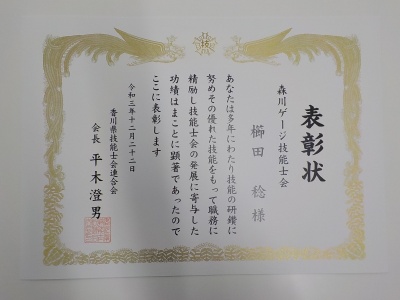 表彰状
森川ゲージ技能士会
櫛田 稔 様
あなたは多年にわたり技能の研鑽に
努めその優れた技能をもって職務に
精励し技能士会の発展に寄与した
功績はまことに顕著であったので
ここに表彰します
令和三年十二月二十二日
香川県技能士会連合会
会長 平木澄男